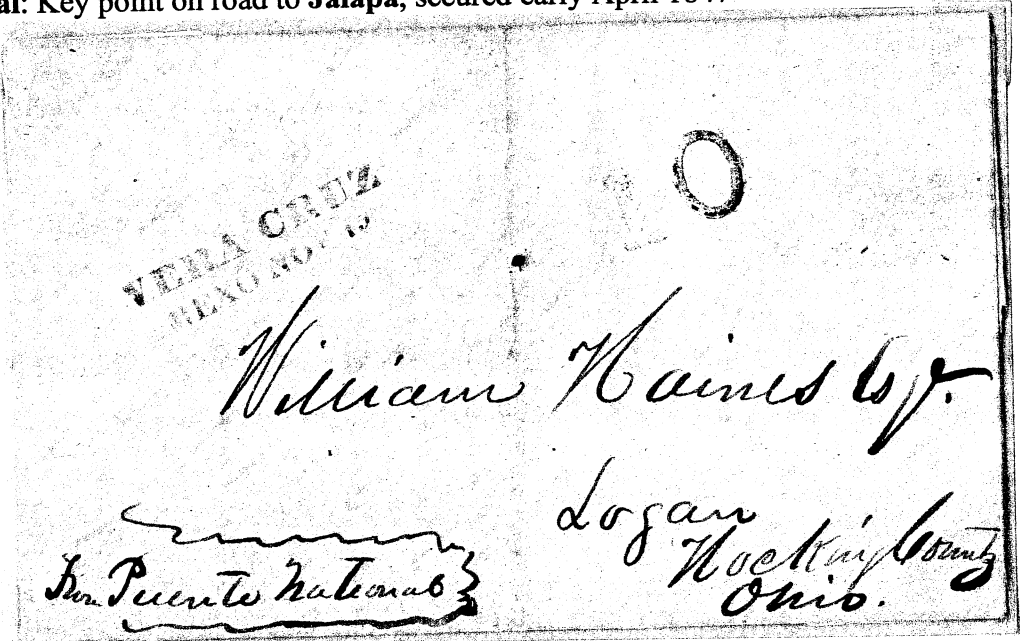 al: Key point on road to Jalapa, secured early April 184
VERA CRUZ
MEXO NOV 15
William Haines Esqr.
Logan
Hocking County
Ohio.
From Puente National